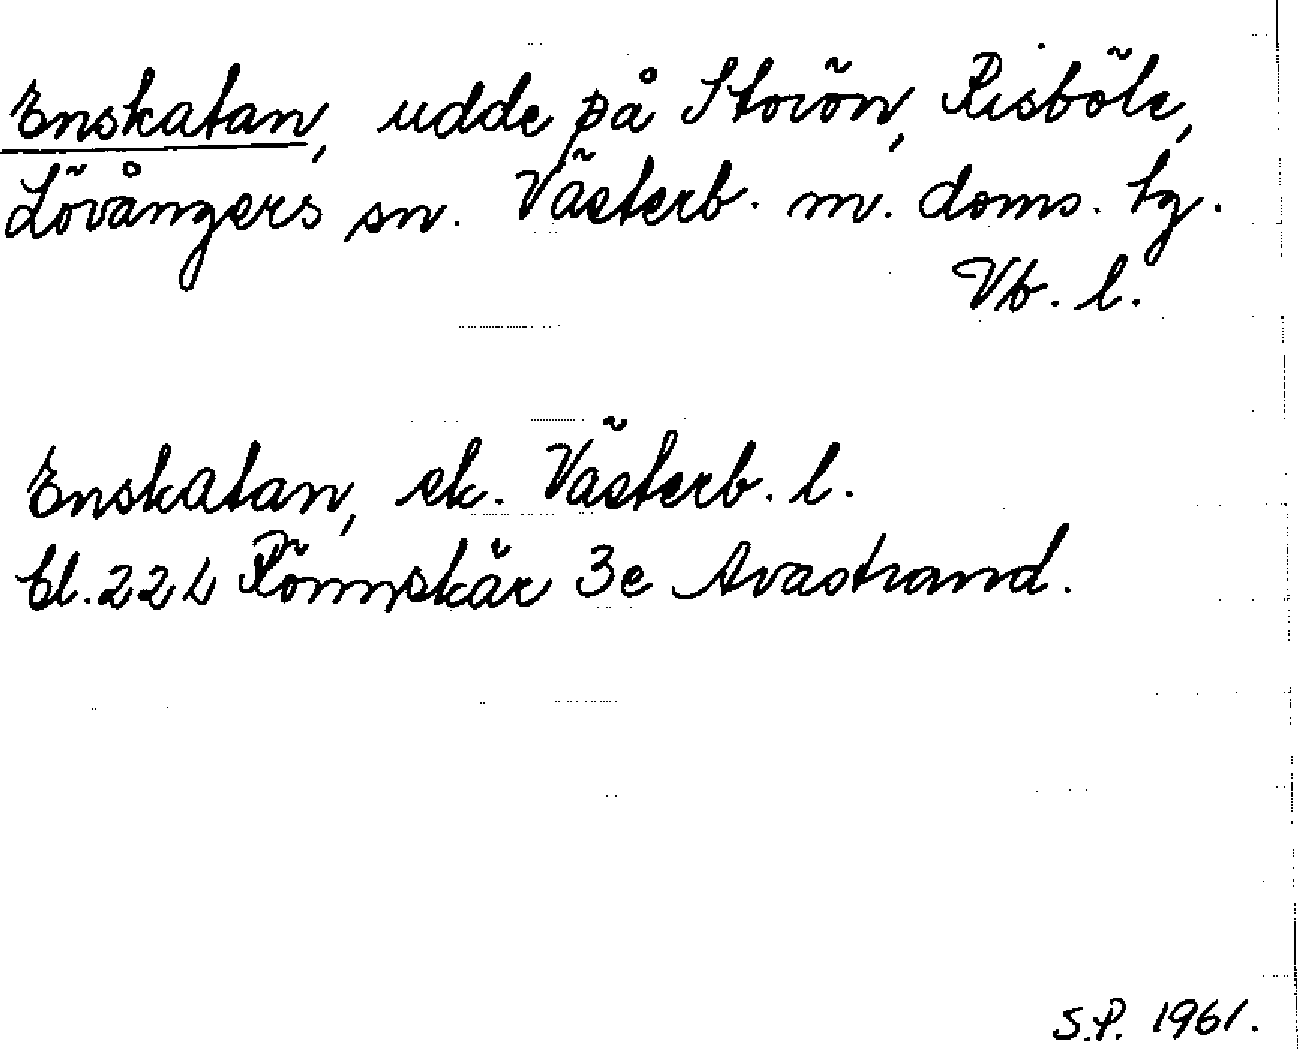 Enskatan, udde på Storön, Risböle,
Lövångers sn. Västerb. m. doms. tg.
Vb. l.
Enskatan, ek. Västerb. l.
bl. 22 L Rönnskär 3e Avastrand.
S.P. 1961.